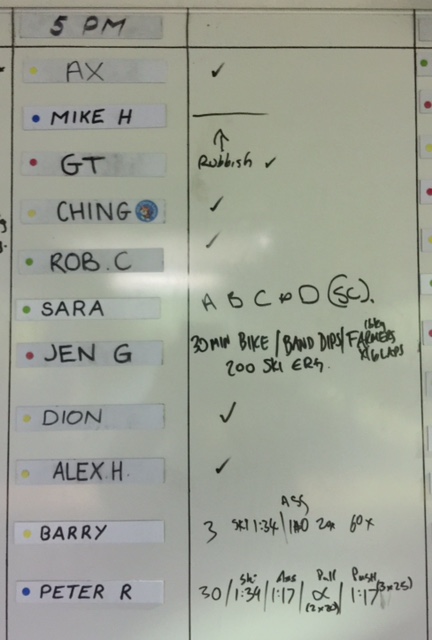 5 PM
AX ✓
MIKE H
↑
GT Rubbish ✓
CHING ✓
ROB.C ✓
SARA A B C D (SC).
JEN G 30 MIN BIKE / BAND DIPS / FARMERS
x 6 LAPS
200 SKI ERG.
DION ✓
ALEX.H. ✓
Ass
BARRY 3 SKI 1:34 / 60x
Ski Ass Pull Push
PETER R 30 / 1:34 / 1:17 / α / 1:17 (3x25)
(2x20)